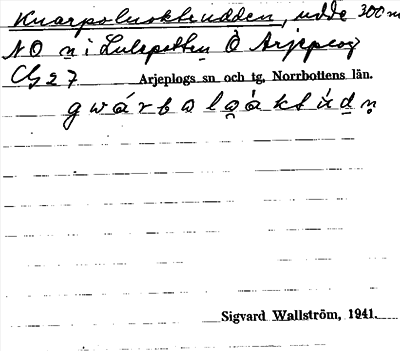 Kuarpoluokteudden, udde 300 m
NO n i Lulepotten Ö Arjeplog
CG 27 Arjeplogs sn och tg, Norrbottens län.
g w á r b o l o̯ à k t ú d n̥
Sigvard Wallström, 1941.